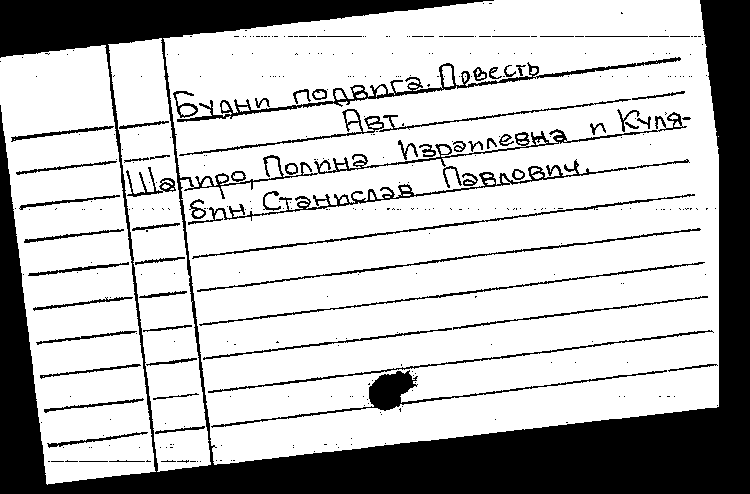 Будни подвига. Повесть
Авт.
Шапиро, Полина Израилевна и Куля-
бин, Станислав Павлович.